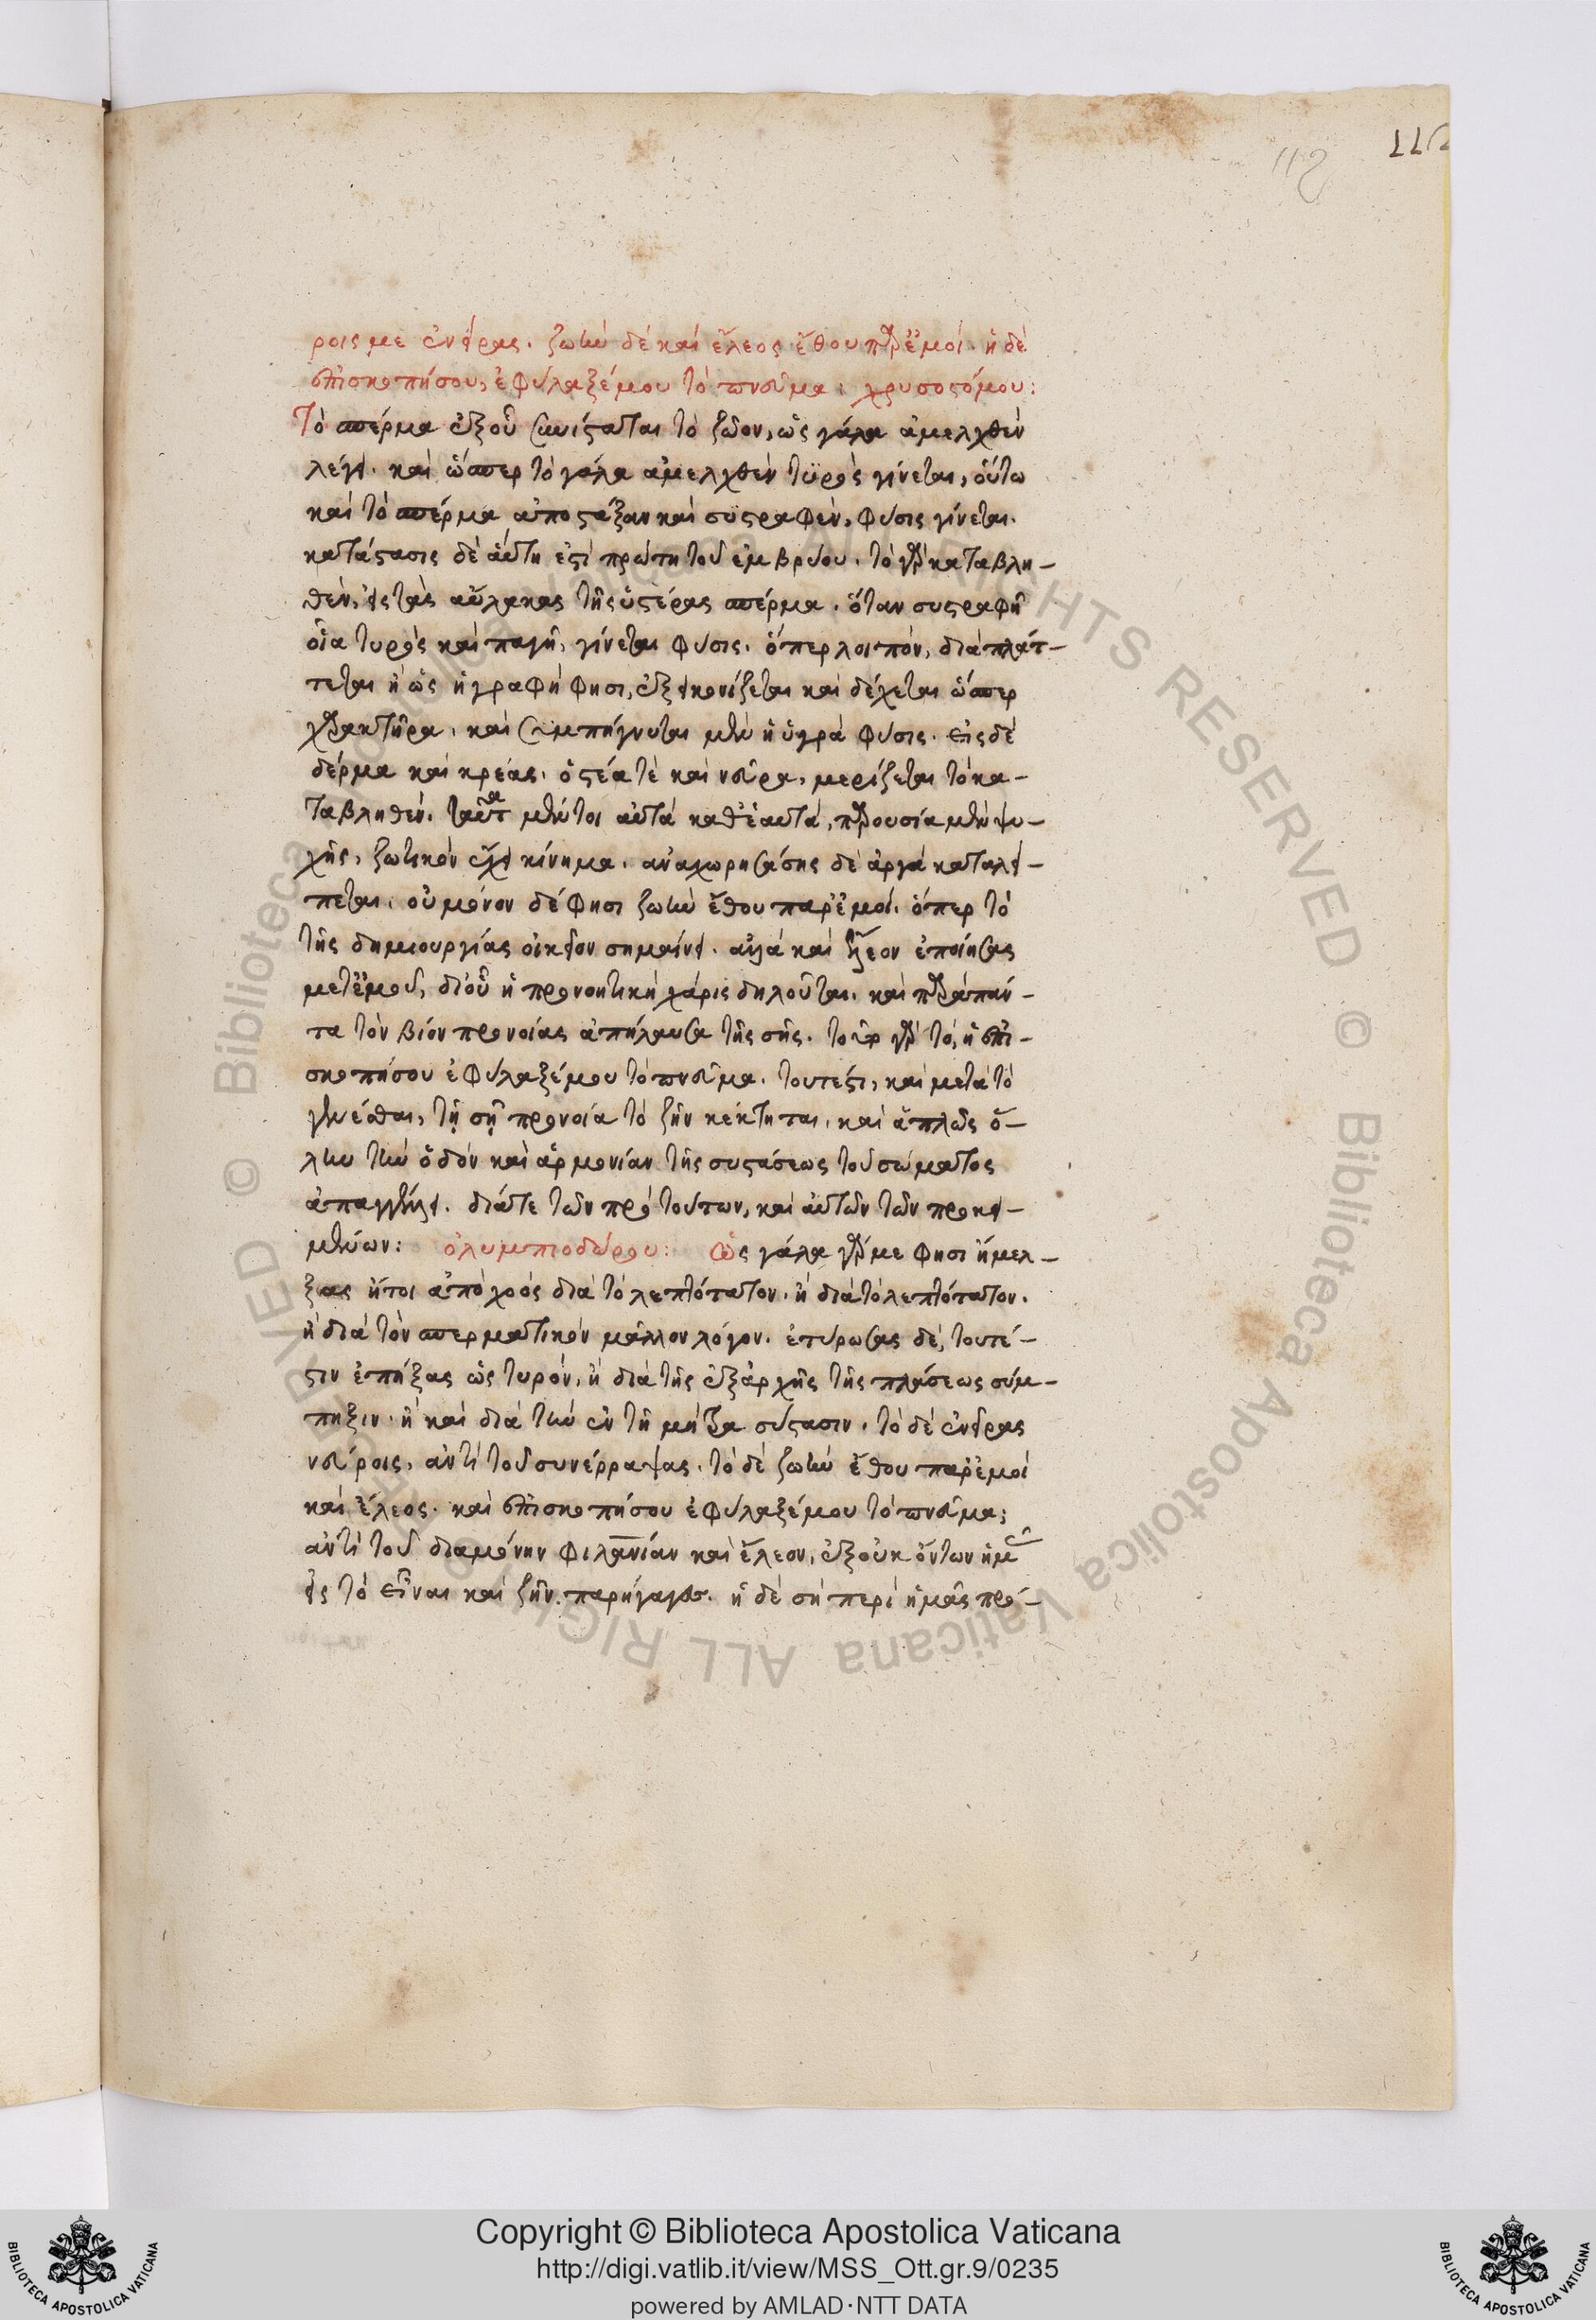 112
112
ροις με ἐνεῖρας. ζωὴν δὲ καὶ ἔλεος ἔθου παρ' ἐμοί. ἡ δὲ
ἐπισκοπή σου, ἐφύλαξέ μου τὸ πνεῦμα: χρυσοστόμου:
Τὸ σπέρμα ἐξ οὗ συνίσταται τὸ ζῶον, ὡς γάλα ἀμελχθὲν
λέγει. καὶ ὥσπερ τὸ γάλα ἀμελχθὲν τυρὸς γίνεται, οὕτω
καὶ τὸ σπέρμα ἀποστάξαν καὶ συστραφὲν, φύσις γίνεται.
κατάστασις δὲ αὕτη ἐστὶ πρώτη τοῦ ἐμβρύου. τὸ γὰρ καταβλη-
θὲν εἰς τὰς αὔλακας τῆς ὑστέρας σπέρμα. ὅταν συστραφῇ
οἷα τυρὸς καὶ παγῇ, γίνεται φύσις. ὅπερ λοιπὸν, διαπλάτ-
τεται ἢ ὡς ἡ γραφή φησι, ἐξεικονίζεται καὶ δέχεται ὥσπερ
χαρακτῆρα. καὶ συμπήγνυται μὲν ἡ ὑγρὰ φύσις. εἰς δὲ
δέρμα καὶ κρέας. ὀστέα τὲ καὶ νεῦρα, μερίζεται τὸ κα-
ταβληθέν. ταῦτα μέντοι αὐτὰ καθ' ἑαυτὰ, παρουσία μὲν ψυ-
χῆς, ζωτικὸν ἔχει κίνημα. ἀναχωρησάσης δὲ ἀργὰ καταλεί-
πεται. οὐ μόνον δέ φησι ζωὴν ἔθου παρ' ἐμοί. ὅπερ τὸ
τῆς δημιουργίας οἰκεῖον σημαίνει. ἀλλὰ καὶ ἔλεον ἐποίησας
μετ' ἐμοῦ, δι' οὗ ἡ προνοητικὴ χάρις δηλοῦται. καὶ παρὰ πάν-
τα τὸν βίον προνοίας ἀπήλαυσα τῆς σῆς. τοῦτο γὰρ τὸ, ἡ ἐπι-
σκοπή σου ἐφύλαξέ μου τὸ πνεῦμα. τουτέστι, καὶ μετὰ τὸ
γενέσθαι, τῇ σῇ προνοία τὸ ζῆν κέκτηται. καὶ ἁπλῶς ὅ-
λην τὴν ὁδὸν καὶ ἁρμονίαν τῆς συστάσεως τοῦ σώματος
ἀπαγγέλλει. διά τε τῶν πρὸ τούτων, καὶ αὐτῶν τῶν προκει-
μένων: ὀλυμπιοδώρου: Ὡς γάλα γάρ με φησὶ ἤμελ-
ξας ἤτοι ἀπὸ χοὸς διὰ τὸ λεπτότατον. ἢ διὰ τὸ λεπτότατον.
ἢ διὰ τὸν σπερματικὸν μᾶλλον λόγον. ἐτύρωσας δὲ, τουτέ-
στιν ἐπήξας ὡς τυρόν, ἢ διὰ τῆς ἐξ ἀρχῆς τῆς πλάσεως σύμ-
πηξιν. ἢ καὶ διὰ τὴν ἐν τῇ μήτρα σύστασιν. τὸ δὲ ἐνεῖρας
νεύροις, ἀντὶ τοῦ συνέρραψας. τὸ δὲ ζωὴν ἔθου παρ' ἐμοί
καὶ ἔλεος. καὶ ἐπισκοπή σου ἐφύλαξέ μου τὸ πνεῦμα;
ἀντὶ τοῦ διαμόνην φιλανίαν καὶ ἔλεον, ἐξ οὐκ ὄντων ἡμᾶς
εἰς τὸ εἶναι καὶ ζῆν παρήγαγες. ἡ δὲ σὴ περὶ ἡμᾶς πρό-
Copyright © Biblioteca Apostolica Vaticana
http://digi.vatlib.it/view/MSS_Ott.gr.9/0235
powered by AMLAD·NTT DATA